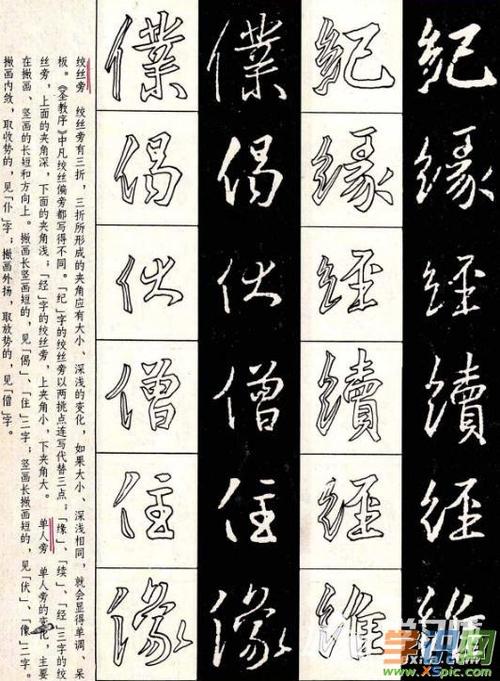 紀
緣
經
續
經
維
紀
緣
經
續
經
維
僕
偈
伏
僧
住
像
僕
偈
伏
僧
住
像
绞丝旁 绞丝旁有三折，三折所形成的夹角应有大小、深浅的变化，如果大小、深浅相同，就会显得单调、呆
板。《圣教序》中凡绞丝偏旁都写得不同。「纪」字的绞丝旁以两挑点连写代替三点；「缘」、「续」、「经」三字的绞
丝旁，上面的夹角深，下面的夹角浅；「经」字的绞丝旁，上夹角小，下夹角大。 单人旁 单人旁的变化，主要
在撇画、竖画的长短和方向上。撇画长竖画短的，见「偈」、「住」二字；竖画长撇画短的，见「伏」、「像」二字。
撇画内敛，取收势的，见「仆」字；撇画外扬，取放势的，见「僧」字。
学识网